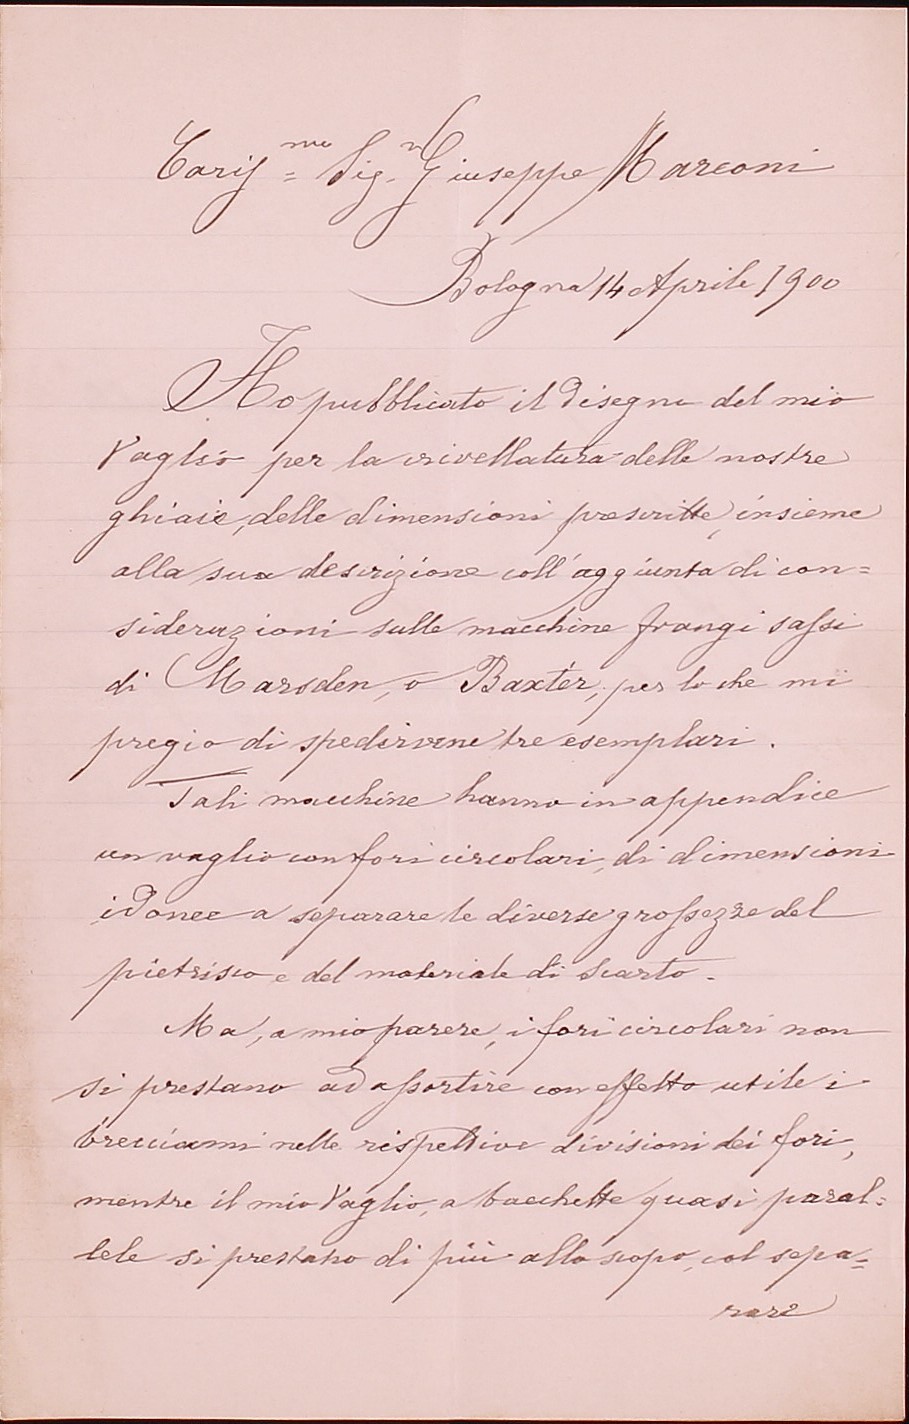 Cariſ.mo Sig.r Giuseppe Marconi
Bologna 14 Aprile 1900
Ho pubblicato il disegno del mio
Vaglio per la crivellatura delle nostre
ghiaie, delle dimensioni prescritte, insieme
alla sua descrizione coll'aggiunta di con=
siderazioni sulle macchine frangi saſsi
di Marsden, o Baxter, per lo che mi
pregio di spedirvene tre esemplari.
Tali macchine hanno in appendice
un vaglio con fori circolari, di dimensioni
idonee a separare le diverse groſsezze del
pietrisco e del materiale di scarto.
Ma, a mio parere, i fori circolari non
si prestano ad aſsortire con effetto utile i
brecciami nelle rispettive divisioni dei fori,
mentre il mio Vaglio, a bacchette quasi paral=
lele si prestano di più allo scopo, col sepa=
rare